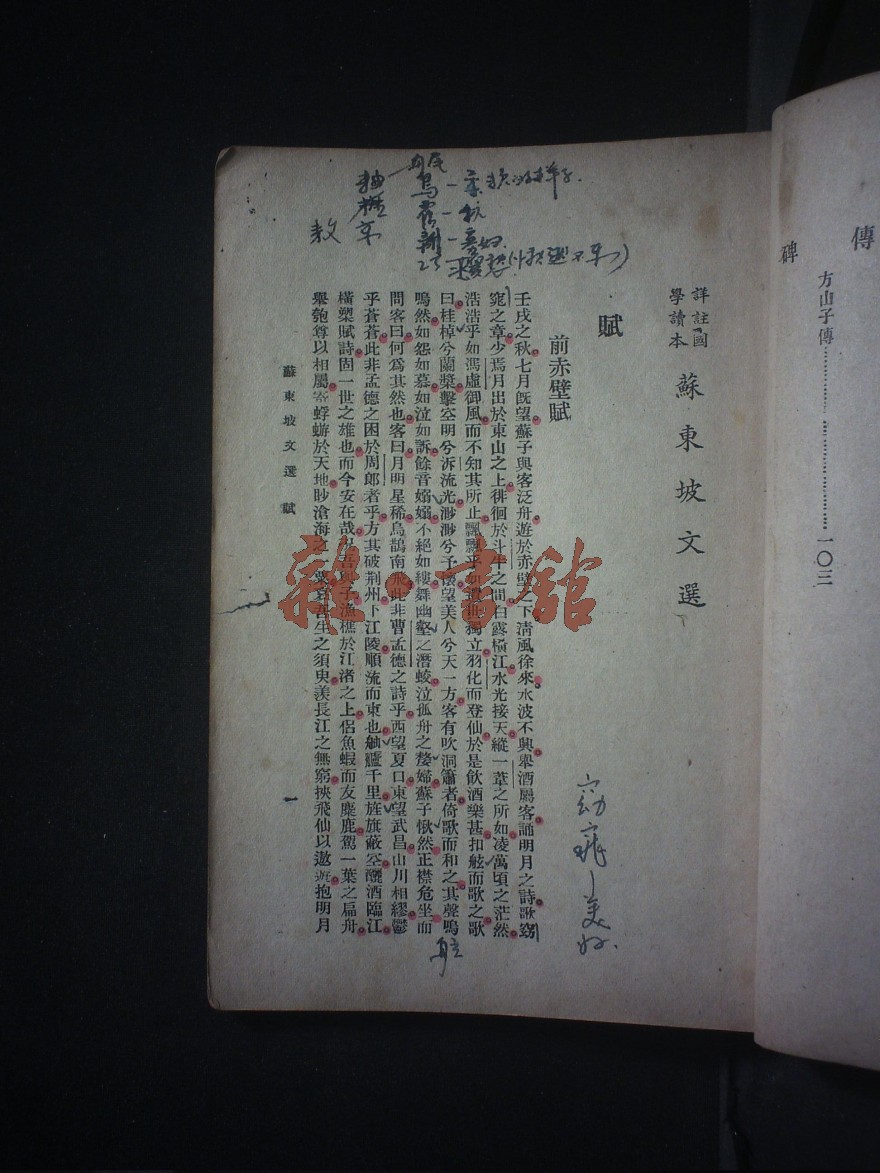 傳
碑
方山子傳……………………一〇三
詳註國
學讀本
蘇東坡文選
賦
前赤壁賦
壬戌之秋七月既望蘇子與客泛舟遊於赤壁之下清風徐來水波不興舉酒屬客誦明月之詩歌窈
窕之章少焉月出於東山之上徘徊於斗牛之間白露橫江水光接天縱一葦之所如凌萬頃之茫然
浩浩乎如馮虛御風而不知其所止飄飄乎如遺世獨立羽化而登仙於是飲酒樂甚扣舷而歌之歌
曰桂棹兮蘭槳擊空明兮泝流光渺渺兮予懷望美人兮天一方客有吹洞簫者倚歌而和之其聲嗚
嗚然如怨如慕如泣如訴餘音嫋嫋不絕如縷舞幽壑之潛蛟泣孤舟之嫠婦蘇子愀然正襟危坐而
問客曰何爲其然也客曰月明星稀烏鵲南飛此非曹孟德之詩乎西望夏口東望武昌山川相繆鬱
乎蒼蒼此非孟德之困於周郎者乎方其破荆州下江陵順流而東也舳艫千里旌旗蔽空釃酒臨江
橫槊賦詩固一世之雄也而今安在哉況吾與子漁樵於江渚之上侶魚蝦而友麋鹿駕一葉之扁舟
舉匏尊以相屬寄蜉蝣於天地眇滄海之一粟哀吾生之須臾羨長江之無窮挾飛仙以遨遊抱明月
蘇東坡文選 賦 一
雜·書館